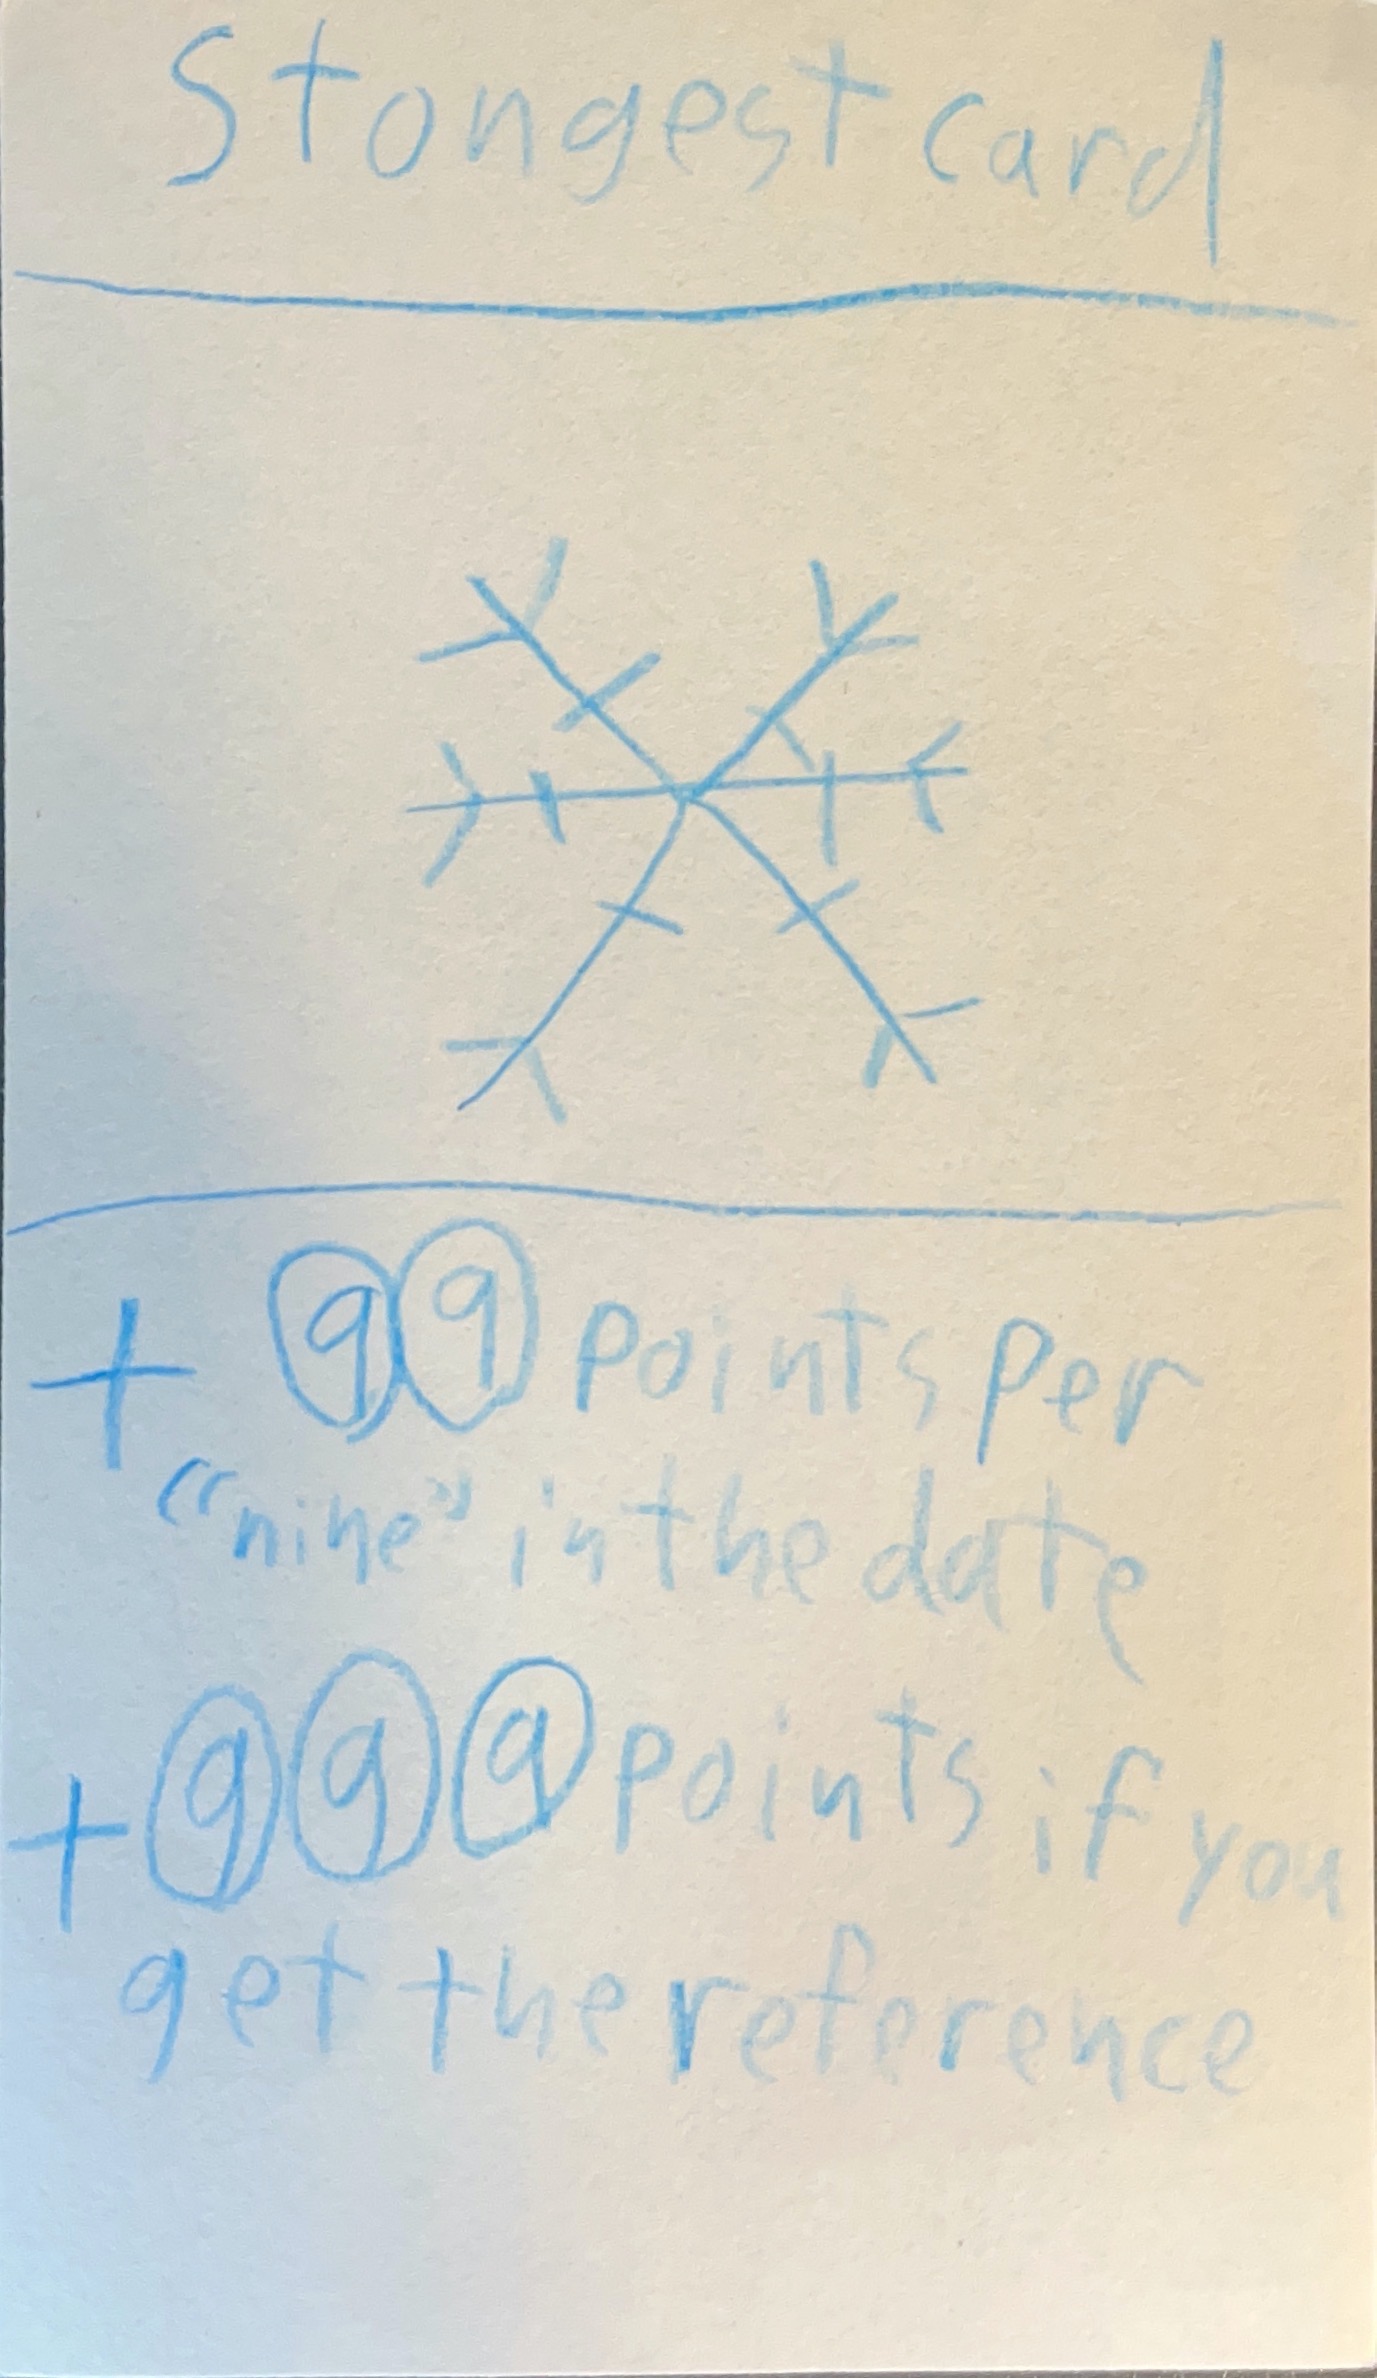 Stongest card
+ 99 points per
"nine" in the date
+999 points if you
get the reference